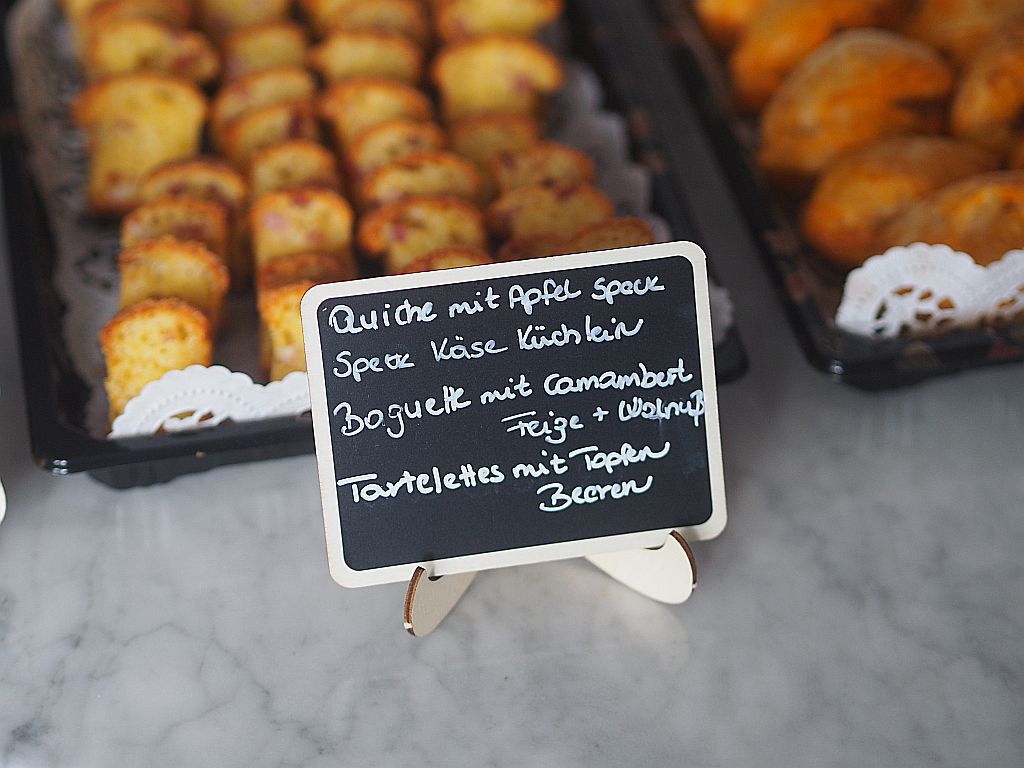 Quiche mit Apfel Speck
Speck Käse Küchlein
Baguette mit Camambert
Feige + Walnuß
Tartelettes mit Topfen
Beeren